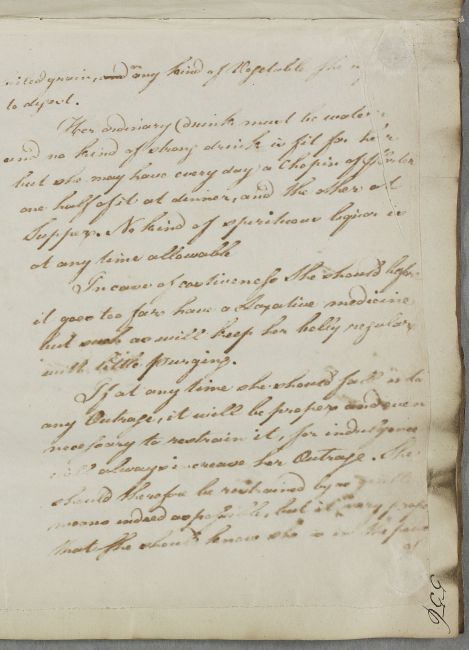 grain, and any kind of Vegetable she
to digest.
Her ordinary drink must be water,
and no kind of strong drink is fit for her
but she may have every day a Chopin of Porter
one half of it at dinner, and the other at
Supper. No kind of spirituous liquor is
at any time allowable
In case of costiveness She should before
it goes too far have a Laxative medicine
but such as will keep her belly regular
with little purging.
If at any time she should fall into
any Outrage, it will be proper and even
necessary to restrain it, for indulgence
will always increase her Outrage. She
should therefore be restrained by as gentle
means indeed as possible, but it is very proper
that She should know she is in the power
of
556